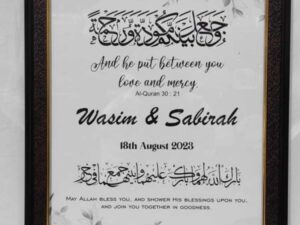 وَجَعَلَ بَيْنَكُم مَّوَدَّةً وَرَحْمَةً
And he put between you
love and mercy.
Al-Quran 30 : 21
Wasim & Sabirah
18th August 2023
بارك الله لهما وبارك عليهما وجمع بينهما في خير
MAY ALLAH BLESS YOU, AND SHOWER HIS BLESSINGS UPON YOU,
AND JOIN YOU TOGETHER IN GOODNESS.